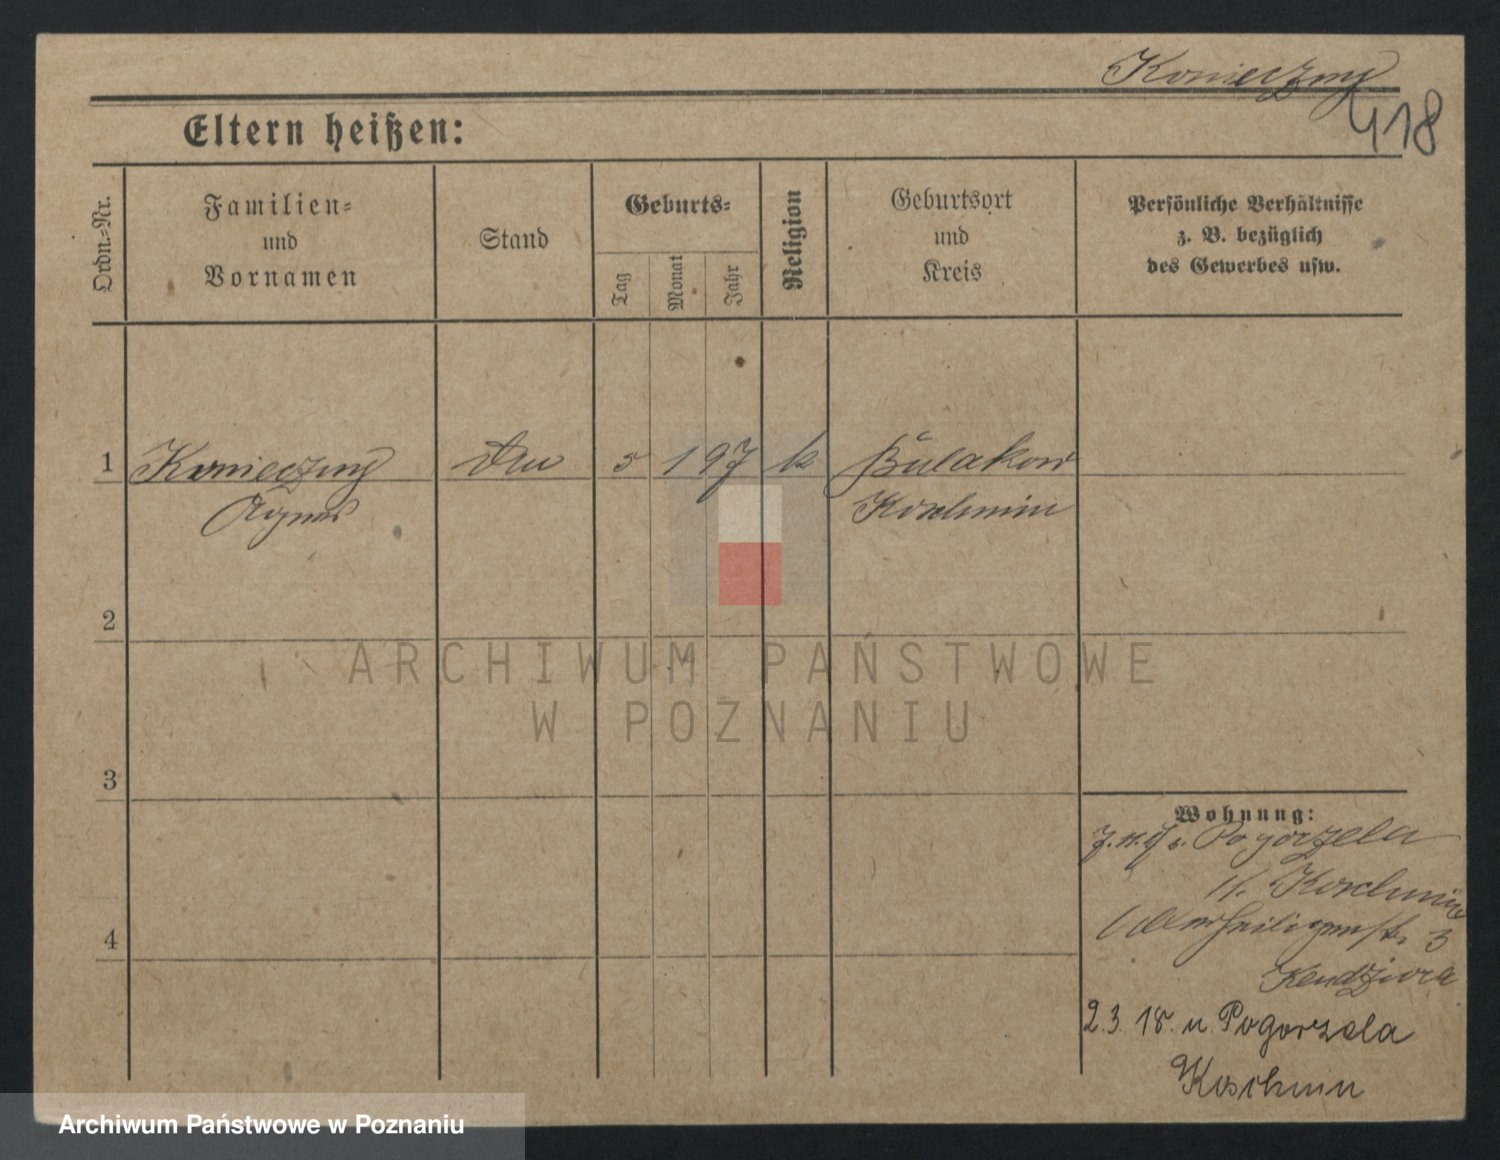 Konieczny
418
Eltern heißen:
Ordn.-Nr.
Familien-
und
Vornamen
Stand
Geburts-
Tag
Monat
Jahr
Religion
Geburtsort
und
Kreis
Persönliche Verhältnisse
z. B. bezüglich
des Gewerbes usw.
1 Konieczny 5 1 97 k Bulakow
Agnes Koschmin
2
3
4
Wohnung:
Pogorzela
Koschmin
Allerheiligenstr. 3
Kendziora
2.3.18. n. Pogorzela
Koschmin
ARCHIWUM PAŃSTWOWE
W POZNANIU
Archiwum Państwowe w Poznaniu